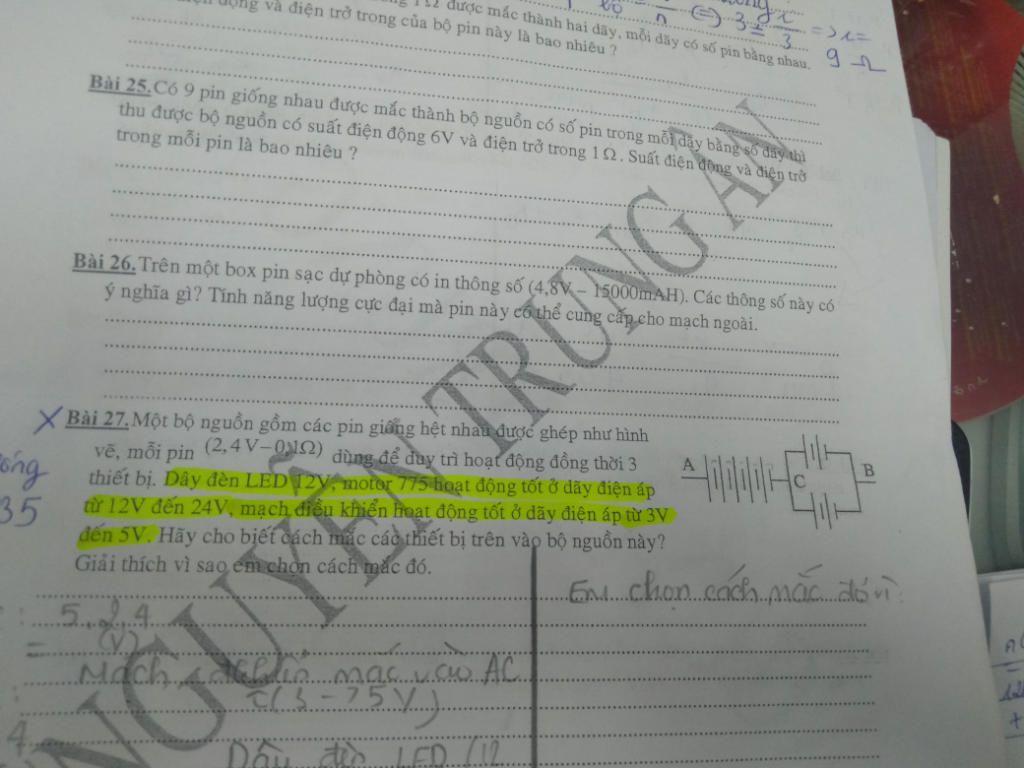 1Ω được mắc thành hai dãy, mỗi dãy có số pin bằng nhau.
động và điện trở trong của bộ pin này là bao nhiêu ?
9 Ω
Bài 25. Có 9 pin giống nhau được mắc thành bộ nguồn có số pin trong mỗi dãy bằng số dãy thì
thu được bộ nguồn có suất điện động 6V và điện trở trong 1Ω. Suất điện động và điện trở
trong mỗi pin là bao nhiêu ?
Bài 26. Trên một box pin sạc dự phòng có in thông số (4,8V – 15000mAH). Các thông số này có
ý nghĩa gì? Tính năng lượng cực đại mà pin này có thể cung cấp cho mạch ngoài.
X Bài 27. Một bộ nguồn gồm các pin giống hệt nhau được ghép như hình
vẽ, mỗi pin (2,4V–0,1Ω) dùng để duy trì hoạt động đồng thời 3
thiết bị. Dây đèn LED 12V, motor 775 hoạt động tốt ở dãy điện áp
từ 12V đến 24V, mạch điều khiển hoạt động tốt ở dãy điện áp từ 3V
đến 5V. Hãy cho biết cách mắc các thiết bị trên vào bộ nguồn này?
Giải thích vì sao em chọn cách mắc đó.
A
C
B
35
Em chọn cách mắc đó vì:
5.2,4
(V)
mắc vào AC
Dây đèn LED (12
NGUYỄN TRUNG AN